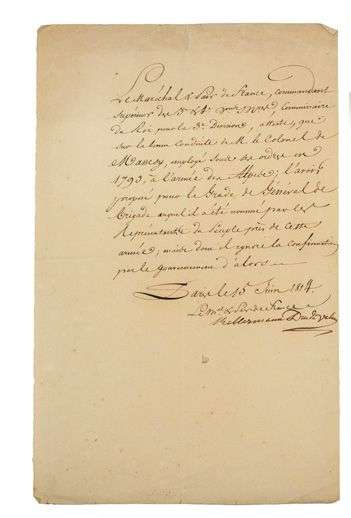 Le Maréchal & Pair de France, commandant
Supérieur des
du Roi pour la 3e Division, atteste, que
sur la bonne conduite de M. le Colonel de
employé sous ses ordres en
1793, à l'armée des Alpes, l'avoir
proposé pour le Grade de Général de
Brigade auquel il a été nommé par les
Représentants du Peuple près de cette
armée, mais dont il ignore la confirmation
par le Gouvernement d'alors.
Paris le 15 Juin 1814
Le Mal & Pair de France
Kellermann Duc de Valmy